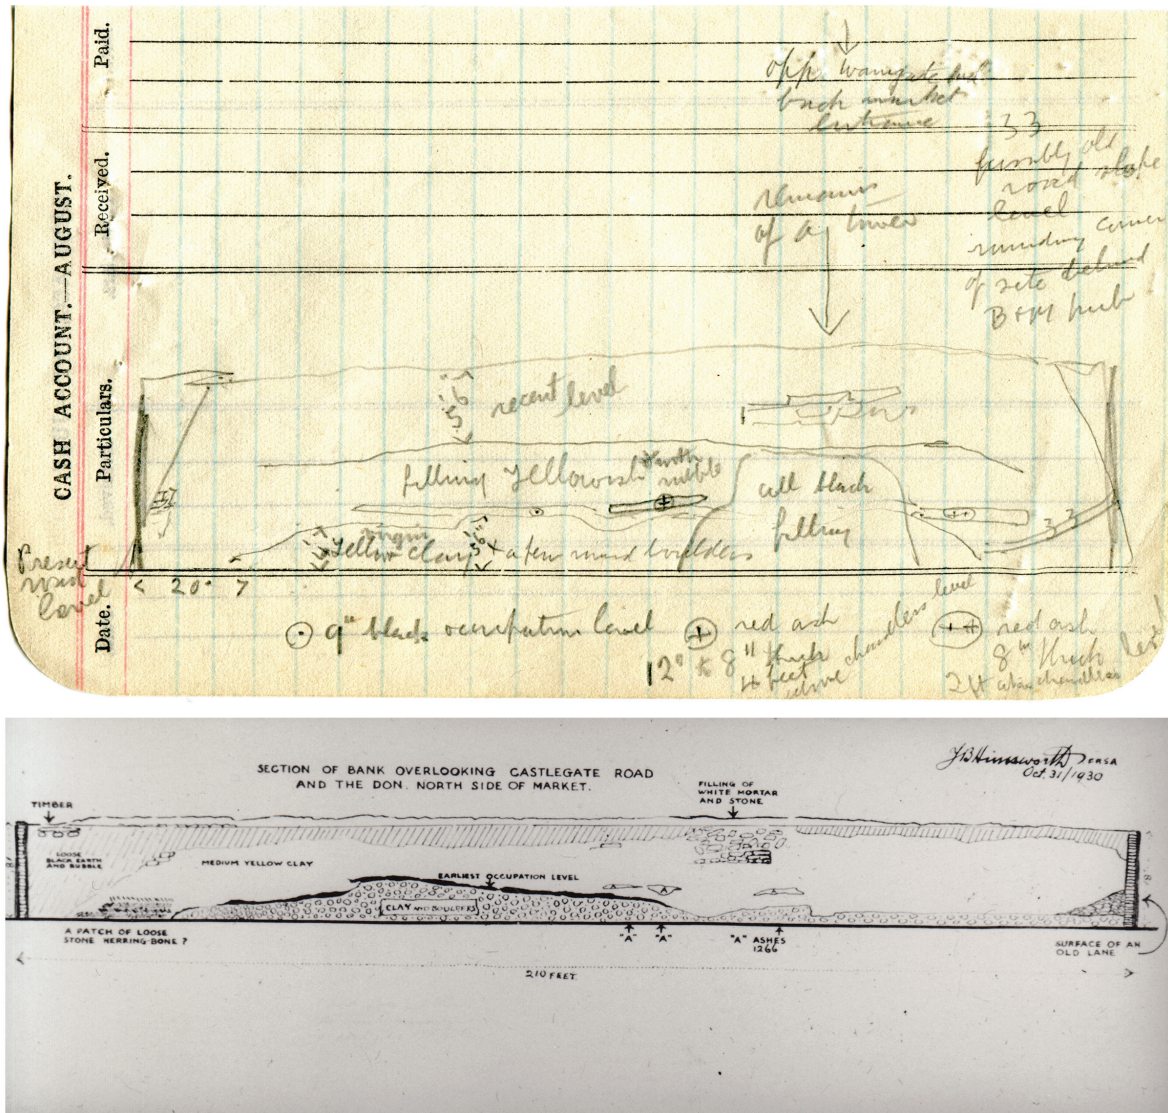 CASH ACCOUNT.—AUGUST.
Date.
Particulars.
Received.
Paid.
back market
entrance
remains
of a tower
33
possibly old
road
level
of site behind
5'6"
recent level
filling yellowish
rubble
all black
filling
virgin
yellow clay + a few round boulders
Present
road
level
< 20° >
9" black occupation level
red ash
8" thick
4 feet
above
level
red ash
8" thick
level
SECTION OF BANK OVERLOOKING CASTLEGATE ROAD
AND THE DON. NORTH SIDE OF MARKET.
J B Himsworth
Oct. 31/1930
TIMBER
FILLING OF
WHITE MORTAR
AND STONE
LOOSE
BLACK EARTH
AND RUBBLE
MEDIUM YELLOW CLAY
EARLIEST OCCUPATION LEVEL
CLAY AND BOULDERS
A
A
A
A PATCH OF LOOSE
STONE HERRING-BONE ?
"A"
"A"
"A" ASHES
1266
SURFACE OF AN
OLD LANE
210 FEET